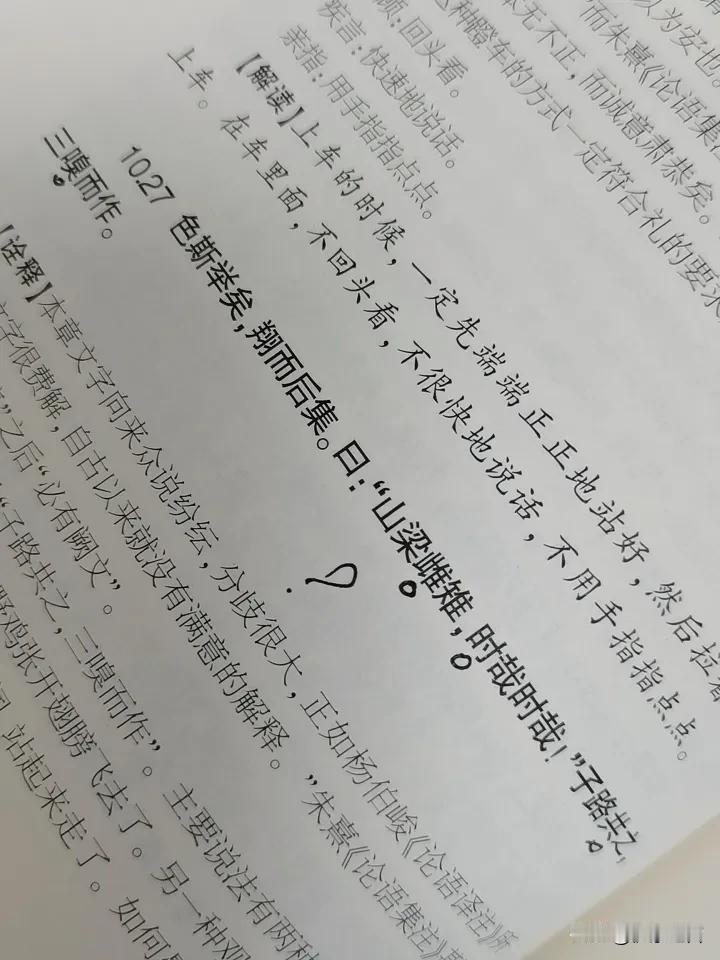 以为安也
而朱熹《论语集注
体无不正,而诚意肃恭矣。
种蹬车的方式一定符合礼的要求
顾:回头看。
疾言:快速地说话。
亲指:用手指指点点。
【解读】上车的时候,一定先端端正正地站好,然后拉着
上车。在车里面,不回头看,不很快地说话,不用手指指点点。
10.27 色斯举矣,翔而后集。曰:“山梁雌雉,时哉时哉!”子路共之,
三嗅而作。
?
【诠释】本章文字向来众说纷纭,分歧很大,正如杨伯峻《论语译注》所
文字很费解,自古以来就没有满意的解释。”朱熹《论语集注》
”之后“必有阙文”。
“子路共之,三嗅而作”。主要说法有两种
野鸡张开翅膀飞去了。另一种观
站起来走了。如何